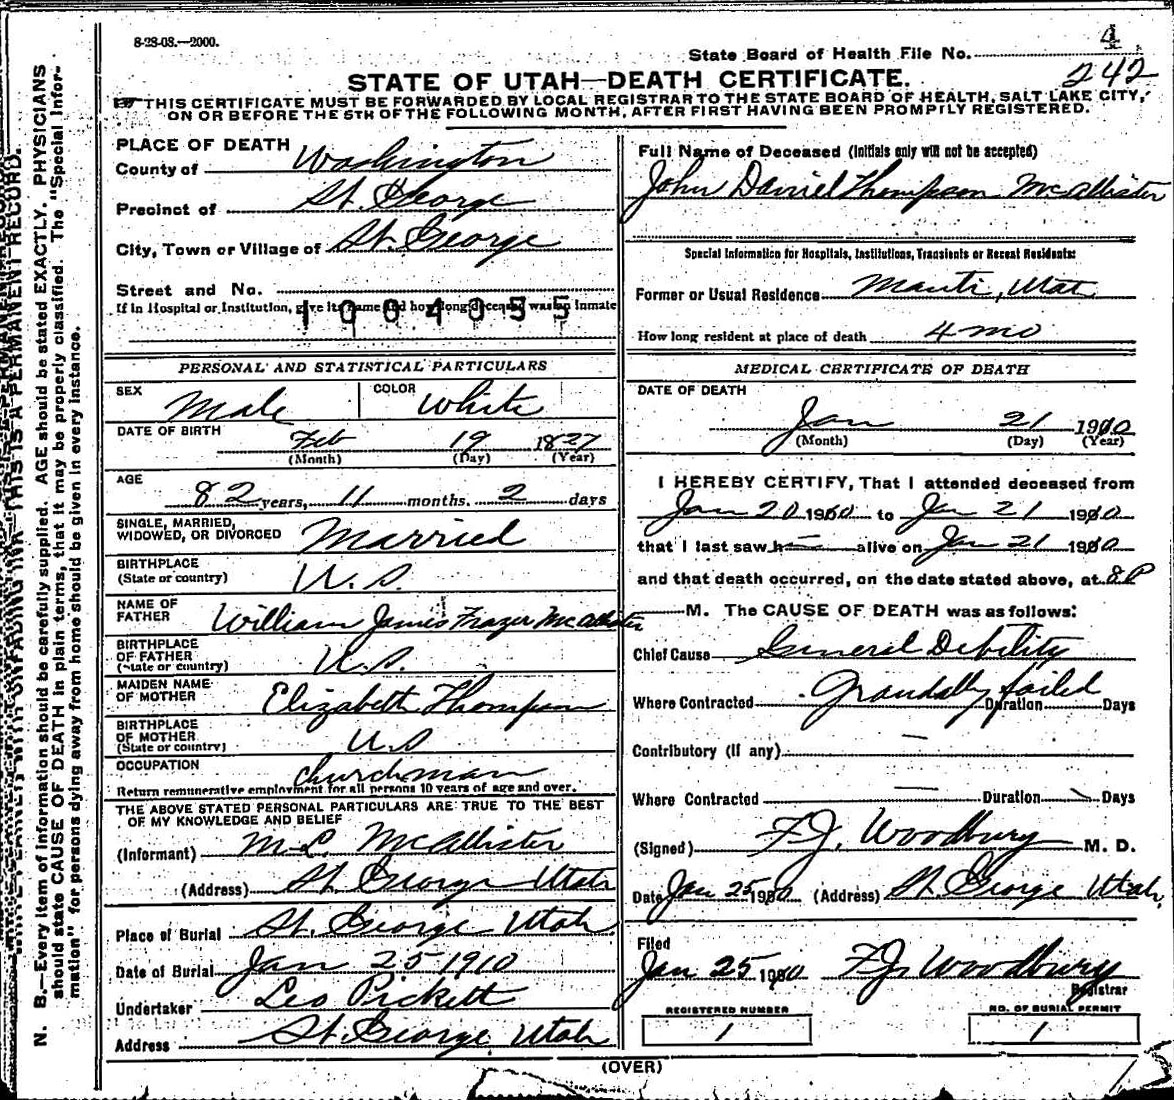 8-28-08.—2000.
4
State Board of Health File No.
242
STATE OF UTAH—DEATH CERTIFICATE.
THIS CERTIFICATE MUST BE FORWARDED BY LOCAL REGISTRAR TO THE STATE BOARD OF HEALTH, SALT LAKE CITY,
ON OR BEFORE THE 5TH OF THE FOLLOWING MONTH, AFTER FIRST HAVING BEEN PROMPTLY REGISTERED.
PLACE OF DEATH
County of Washington
Precinct of St. George
City, Town or Village of St. George
Street and No.
If in Hospital or Institution, give its name and how long deceased was an inmate
1004055
PERSONAL AND STATISTICAL PARTICULARS
SEX Male COLOR White
DATE OF BIRTH
Feb 19 1827
(Month) (Day) (Year)
AGE
82 years, 11 months. 2 days
SINGLE, MARRIED,
WIDOWED, OR DIVORCED Married
BIRTHPLACE
(State or country) U.S.
NAME OF
FATHER William James Frazer McAllister
BIRTHPLACE
OF FATHER
(State or country) U.S.
MAIDEN NAME
OF MOTHER Elizabeth Thompson
BIRTHPLACE
OF MOTHER
(State or country) U.S
OCCUPATION churchman
Return remunerative employment for all persons 10 years of age and over.
THE ABOVE STATED PERSONAL PARTICULARS ARE TRUE TO THE BEST
OF MY KNOWLEDGE AND BELIEF
(Informant) M. L. McAllister
(Address) St. George Utah
Place of Burial St. George Utah
Date of Burial Jan 25 1910
Undertaker Leo Pickett
Address St. George Utah
Full Name of Deceased (Initials only will not be accepted)
John Daniel Thompson McAllister
Special Information for Hospitals, Institutions, Transients or Recent Residents:
Former or Usual Residence Manti, Utah
How long resident at place of death 4 mo
MEDICAL CERTIFICATE OF DEATH
DATE OF DEATH
Jan 21 1910
(Month) (Day) (Year)
I HEREBY CERTIFY, That I attended deceased from
Jan 20 1910 to Jan 21 1910
that I last saw h alive on Jan 21 1910
and that death occurred, on the date stated above, at 8 P
M. The CAUSE OF DEATH was as follows:
Chief Cause General Debility
Where Contracted Gradually failed Duration Days
Contributory (if any) —
Where Contracted — Duration Days
(Signed) F.J. Woodbury M. D.
Date Jan 25 1910 (Address) St. George Utah,
Filed
Jan 25 1910 F.J. Woodbury
Registrar
REGISTERED NUMBER
1
NO. OF BURIAL PERMIT
1
(OVER)
N. B.—Every item of information should be carefully supplied. AGE should be stated EXACTLY. PHYSICIANS
should state CAUSE OF DEATH in plain terms, that it may be properly classified. The "Special Infor-
mation" for persons dying away from home should be given in every instance.
THIS IS A PERMANENT RECORD.